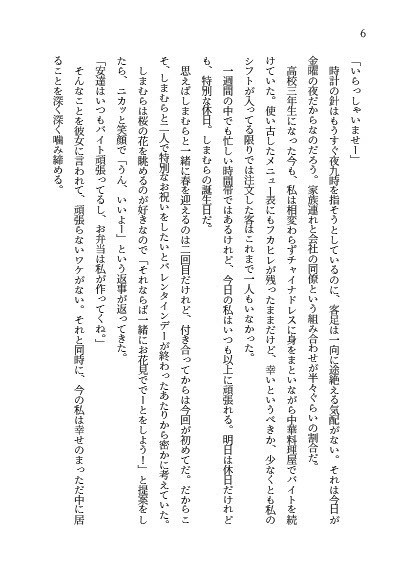 6
「いらっしゃいませー」
　時計の針はもうすぐ夜九時を指そうとしているのに、客足は一向に途絶える気配がない。それは今日が
金曜の夜だからなのだろう。家族連れと会社の同僚という組み合わせが半々ぐらいの割合だ。
　高校三年生になった今も、私は相変わらずチャイナドレスに身をまといながら中華料理屋でバイトを続
けていた。使い古したメニュー表にもフカヒレが残ったままだけど、幸いというべきか、少なくとも私の
シフトが入ってる限りでは注文した客はこれまで一人もいなかった。
　一週間の中でも忙しい時間帯ではあるけれど、今日の私はいつも以上に頑張れる。明日は休日だけれど
も、特別な休日。しまむらの誕生日だ。
　思えばしまむらと一緒に春を迎えるのは二回目だけれど、付き合ってからは今回が初めてだ。だからこ
そ、しまむらと二人で特別なお祝いをしたいとバレンタインデーが終わったあたりから密かに考えていた。
　しまむらは桜の花を眺めるのが好きなので「それならば一緒にお花見ででーとをしよう！」と提案をし
たら、ニカッと笑顔で「うん、いいよー」という返事が返ってきた。
「安達はいつもバイト頑張ってるし、お弁当は私が作ってくね。」
　そんなことを彼女に言われて、頑張らないワケがない。それと同時に、今の私は幸せのまっただ中に居
ることを深く深く噛み締める。